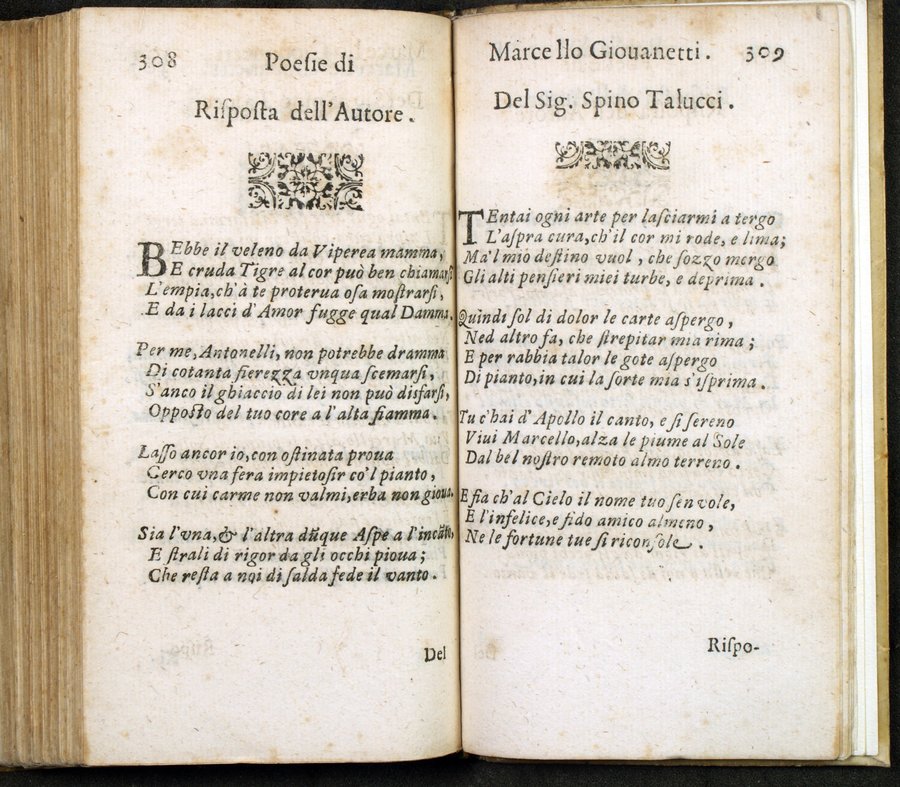 308 Poeſie di
Riſpoſta dell'Autore.
BEbbe il veleno da Viperea mamma,
E cruda Tigre al cor può ben chiamarſi
L'empia, ch'à te proterua oſa moſtrarſi,
E da i lacci d'Amor fugge qual Damma.
Per me, Antonelli, non potrebbe dramma
Di cotanta fierezza vnqua ſcemarſi,
S'anco il ghiaccio di lei non può disfarſi,
Oppoſto del tuo core a l'alta fiamma.
Laſſo ancor io, con oſtinata proua
Cerco vna fera impietoſir co'l pianto,
Con cui carme non valmi, erba non gioua.
Sia l'vna, & l'altra dũque Aſpe a l'incãto,
E ſtrali di rigor da gli occhi pioua;
Che reſta a noi di ſalda fede il vanto.
Del
Marcello Giouanetti. 309
Del Sig. Spino Talucci.
TEntai ogni arte per laſciarmi a tergo
L'aſpra cura, ch'il cor mi rode, e lima;
Ma'l mio deſtino vuol, che ſozzo mergo
Gli alti penſieri miei turbe, e deprima.
Quindi ſol di dolor le carte aſpergo,
Ned altro fa, che ſtrepitar mia rima;
E per rabbia talor le gote aſpergo
Di pianto, in cui la ſorte mia s'iſprima.
Tu c'hai d'Apollo il canto, e ſi ſereno
Viui Marcello, alza le piume al Sole
Dal bel noſtro remoto almo terreno.
E fia ch'al Cielo il nome tuo ſen vole,
E l'infelice, e fido amico almeno,
Ne le fortune tue ſi riconſole.
Riſpo-